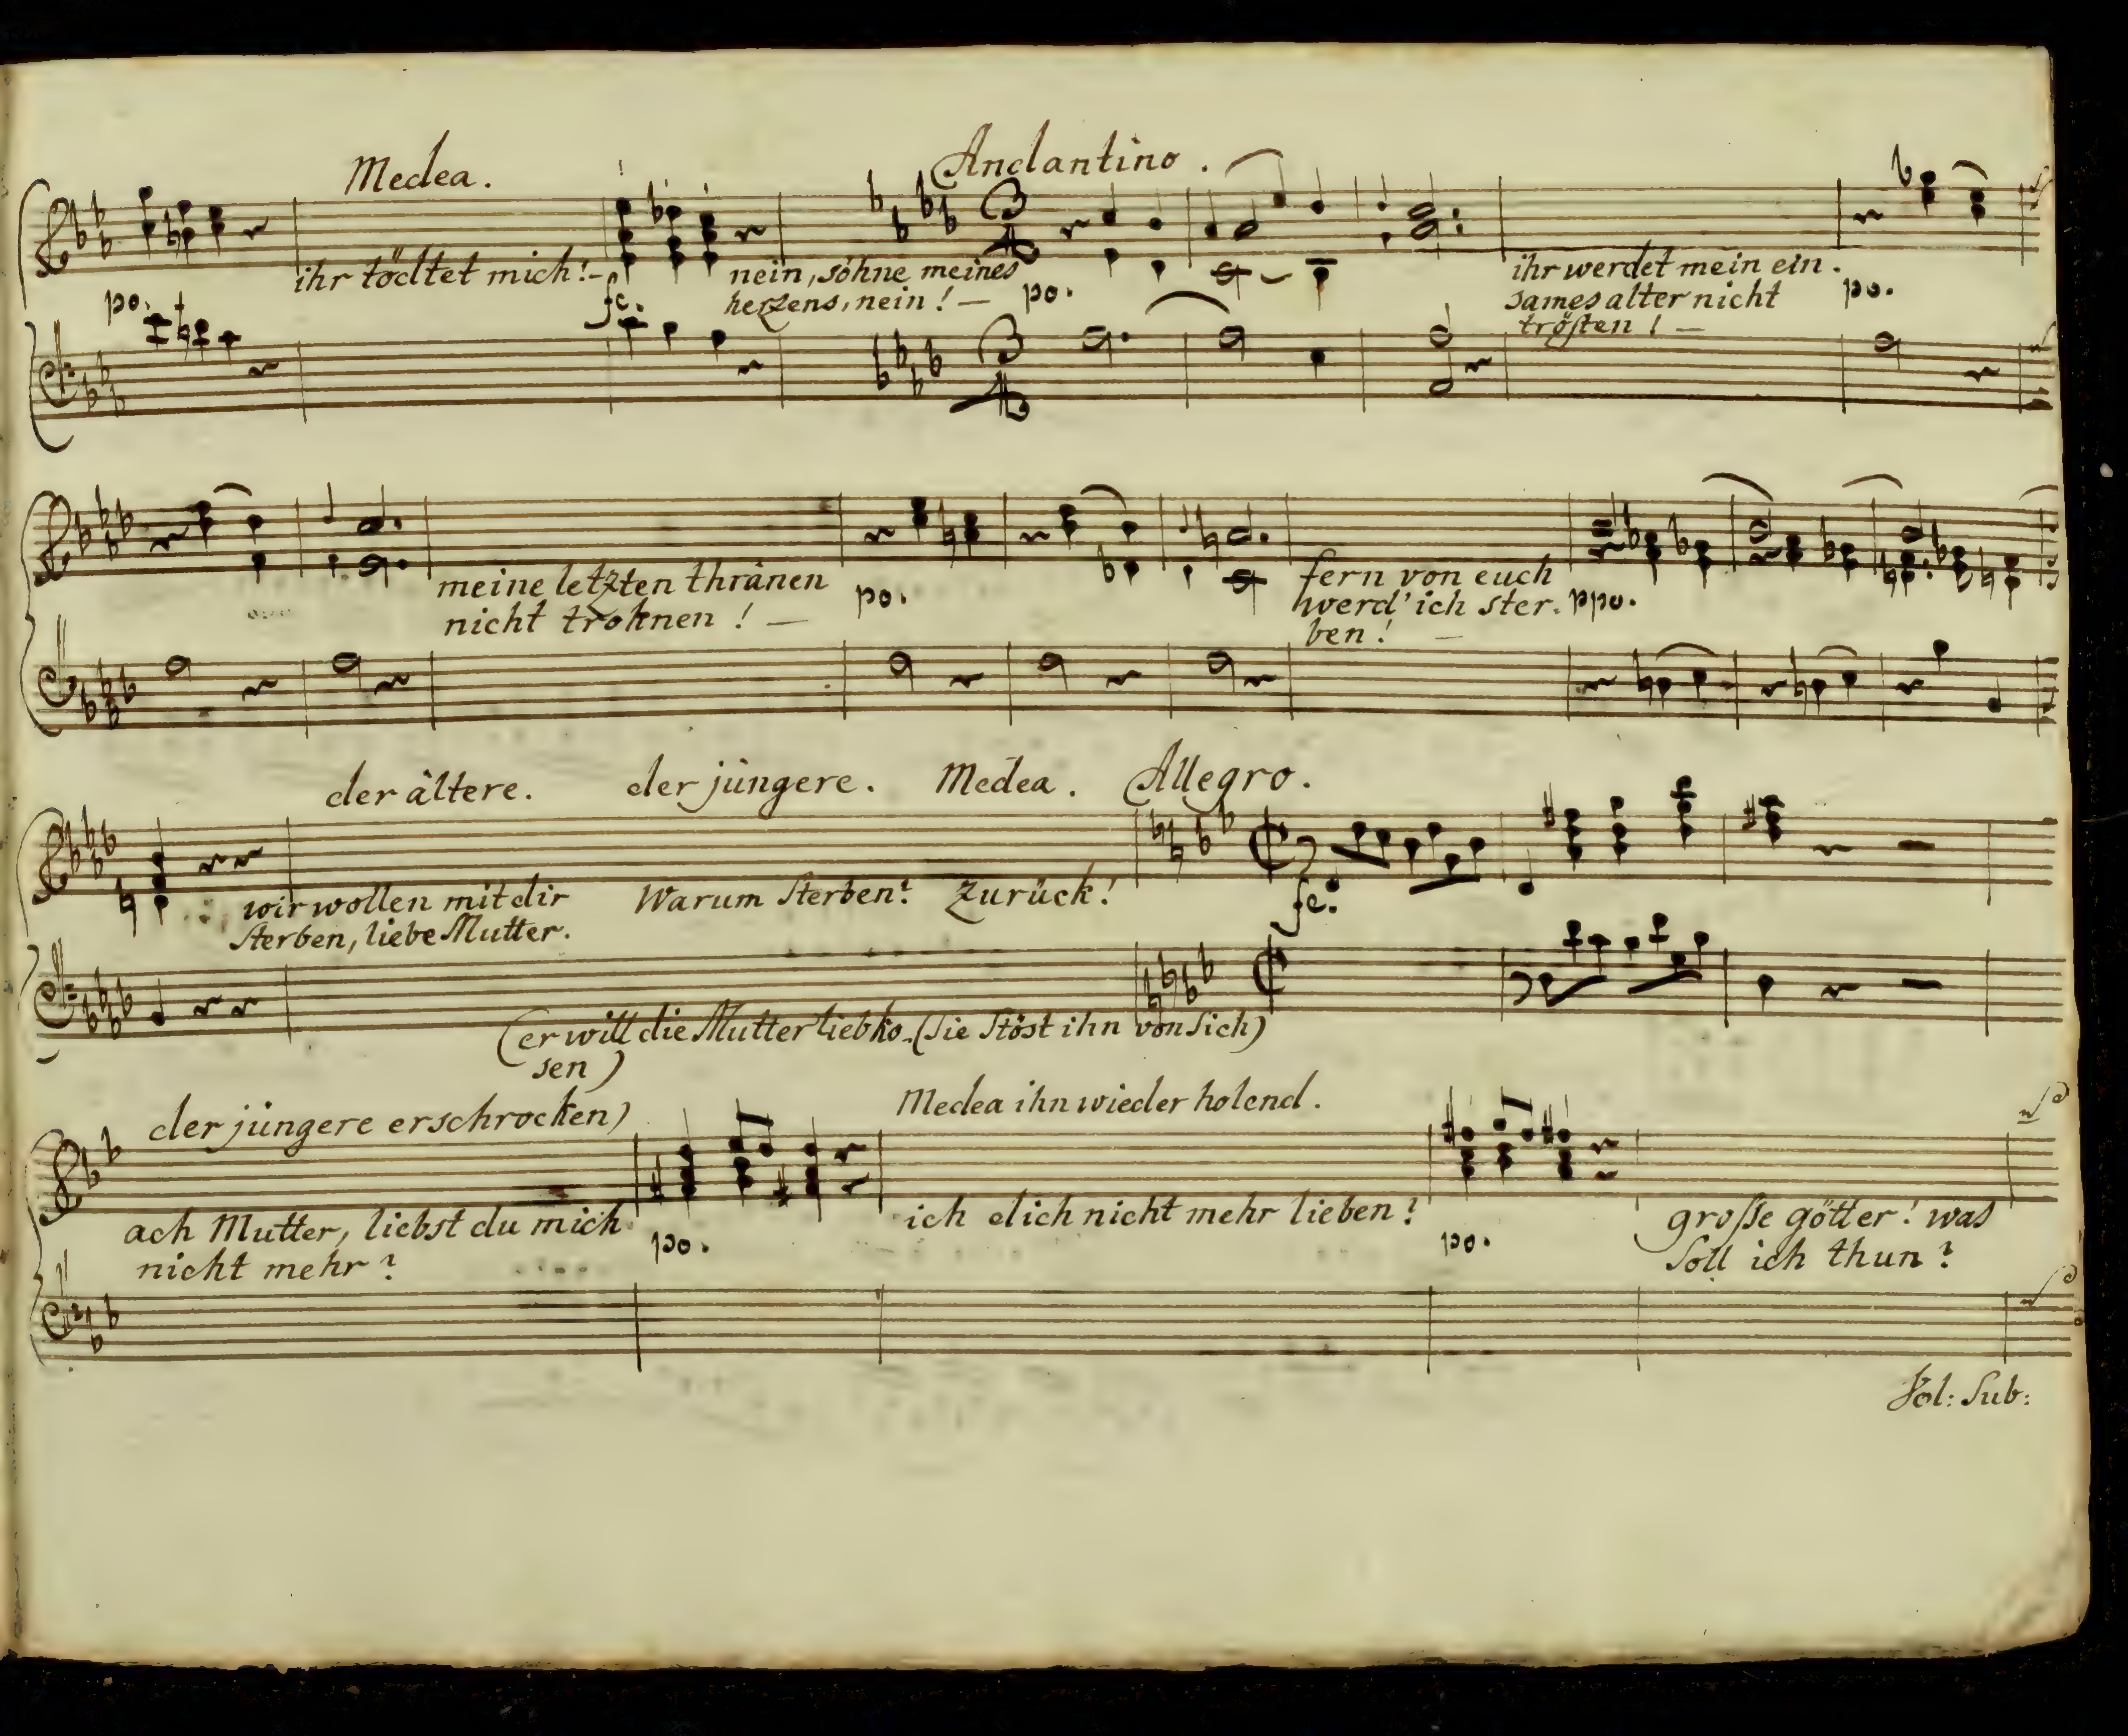 Medea.
Andantino.
ihr tödtet mich!-
nein, söhne meines
herzens, nein! —
ihr werdet mein ein-
sames alter nicht
trösten! —
po.
fe.
po.
po.
meine letzten thränen
nicht troknen! —
po.
fern von euch
werd' ich ster-
ben! —
ppo.
der ältere. der jüngere. Medea. Allegro.
wir wollen mit dir
sterben, liebe Mutter.
Warum sterben? Zurück!
fe.
(er will die Mutter liebko- (sie stöst ihn von sich)
sen)
der jüngere erschrocken) Medea ihn wieder holend.
ach Mutter, liebst du mich
nicht mehr?
po.
ich dich nicht mehr lieben?
po.
große götter! was
soll ich thun?
Vol: Sub: